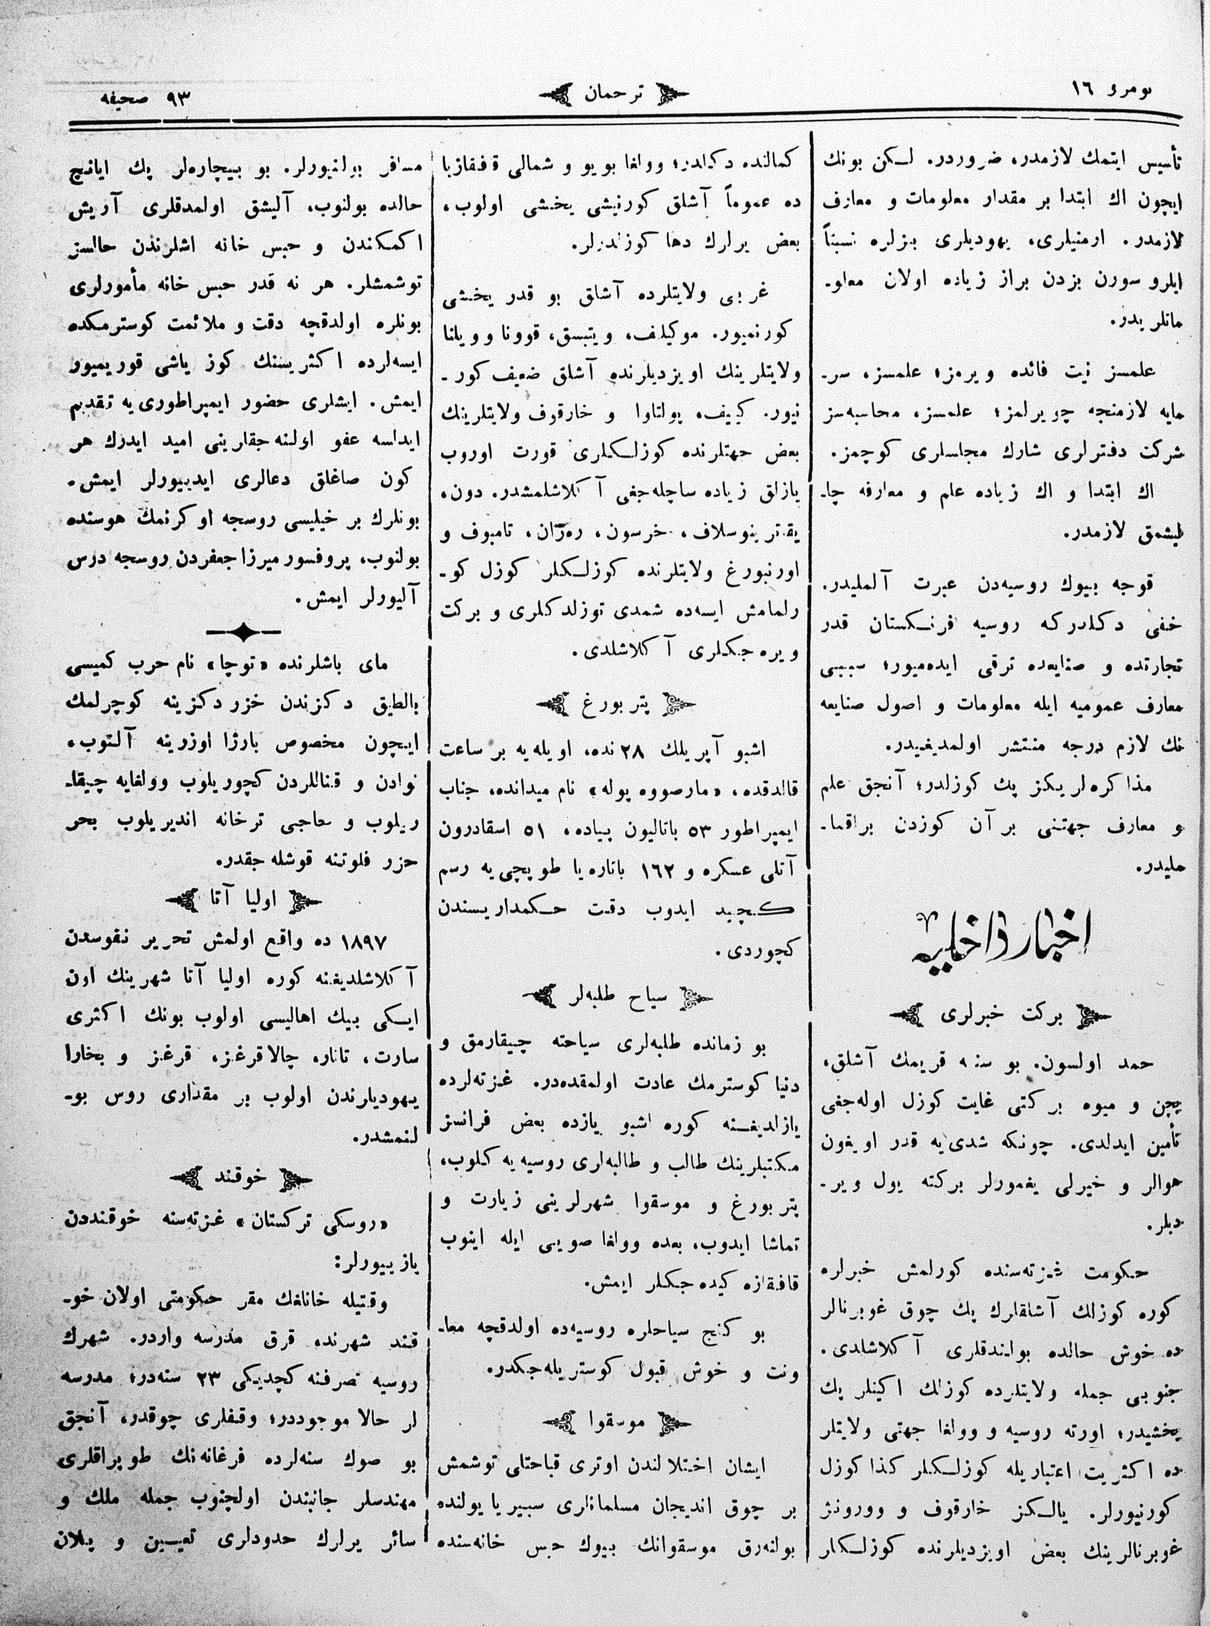 نومرو ١٦
ترجمان
٩٣ صحيفه
تأسيس ايتمك لازمدر، ضروردر. لـكن بونك
ايچون اك ابتدا بر مقدار معلومات و معارف
لازمدر. ارمنيلرى، يهوديلرى بزلره نسبتاً
ايلرو سورن بزدن براز زياده اولان معلو-
ماتلريدر.
علمسز نيت فائده ويرمز؛ علمسز، سر-
مايه لازمنجه چويرلمز؛ علمسز، محاسبه‌سز
شركت دفترلرى شارك مجلسلرى كوچمز.
اك ابتدا و اك زياده علم و معارفه چا-
ليشمق لازمدر.
قوجه بيوك روسيه‌دن عبرت آلمليدر.
خفى دكلدركه روسيه فرنـكستان قدر
تجارتده و صنايعده ترقى ايده‌ميور؛ سببى
معارف عموميه ايله معلومات و اصول صنايعه
نك لازم درجه منتشر اولمديغيدر.
مذاكره‌لريكز پك كوزلدر؛ آنجق علم
و معارف جهتنى بر آن كوزدن براقما-
مليدر.
اخبار داخليه
بركت خبرلرى
حمد اولسون. بو سنه قريمك آشلق،
پچن و ميوه بركتى غايت كوزل اوله‌جغى
تأمين ايدلدى. چونكه شدى‌يه قدر اويغون
هوالر و خيرلى يغمورلر بركته يول وير-
ديلر.
حكومت غزته‌سنده كورلمش خبرلره
كوره كوزلك آشلقلرك پك چوق غوبرنالر
ده خوش حالده بولندقلرى آكلاشلدى.
جنوبى جمله ولايتلرده كوزلك اكينلر پك
يخشيدر؛ اورته روسيه و وولغا جهتى ولايتلر
ده اكثريت اعتباريله كوزلـكلر كذا كوزل
كورنيورلر. يالـكز خارقوف و وورونژ
غوبرنالرينك بعض اويزديلرنده كوزلـكلر
كمالنده دكلدر؛ وولغا بويو و شمالى قفقازيا
ده عموماً آشلق كورنيشى يخشى اولوب،
بعض يرلرك دها كوزلدرلر.
غربى ولايتلرده آشلق بو قدر يخشى
كورنميور. موكيلف، ويتبسق، قوونا و ويلنا
ولايتلرينك اويزديلرنده آشلق ضعيف كور-
نيور. كييف، پولتاوا و خارقوف ولايتلرينك
بعض جهتلرنده كوزلـكلرى قورت اوروب
يازلق زياده ساچله‌جغى آكلاشلمشدر. دون،
يقترينوسلاف، خرسون، رەزان، تامبوف و
اورنبورغ ولايتلرنده كوزلـكلر كوزل كو-
رلمامش ايسه‌ده شمدى توزلدكلرى و بركت
ويره‌جكلرى آكلاشلدى.
پتربورغ
اشبو آپريلك ٢٨ نده، اويله‌يه بر ساعت
قالدقده، «مارصووه پوله» نام ميدانده، جناب
ايمپراطور ٥٣ باتاليون پياده، ٥١ اسقادرون
آتلى عسكره و ١٦٢ باتاره‌يا طوپچى‌يه رسم
كـچيد ايدوب دقت حـكمداريسندن
كچوردى.
سياح طلبه‌لر
بو زمانده طلبه‌لرى سياحته چيقارمق و
دنيا كوسترمك عادت اولمقده‌در. غزته‌لرده
يازلديغـنه كوره اشبو يازده بعض فرانسز
مكتبلرينك طالب و طالبه‌لرى روسيه‌يه كلوب،
پتربورغ و موسقوا شهرلرينى زيارت و
تماشا ايدوب، بعده وولغا صويى ايله اينوب
قافقازه كيده‌جكلر ايمش.
بو كنج سياحلره روسيه‌ده اولدقچه معا-
ونت و خوش قبول كوستريله‌جكدر.
موسقوا
ايشان اختلالندن اوترى قباحتلى توشمش
بر چوق انديجان مسلمانلرى سبيريا يولنده
بولنه‌رق موسقوانك بيوك حبس خانه‌سنده
مسافر بولنيورلر. بو بيچاره‌لر پك ايانچ
حالده بولنوب، آليشق اولمدقلرى آريش
اكمكندن و حبس خانه اشلرندن حالسز
توشمشلر. هر نه قدر حبس خانه مأمورلرى
بونلره اولدقچه دقت و ملائمت كوسترمكده
ايسه‌لرده اكثريسنك كوز ياشى قوريميور
ايمش. ايشلرى حضور ايمپراطورى‌يه تقديم
ايداسه عفو اولنه‌جقلرينى اميد ايدرك هر
كون صاغلق دعالرى ايدييورلر ايمش.
بونلرك بر خيليسى روسجه اوكرنمك هوسنده
بولنوب، پروفسور ميرزا جعفردن روسجه درس
آليورلر ايمش.
ماى باشلرنده «توچا» نام حرب كميسى
بالطيق دكزندن خزر دكزينه كوچرلمك
ايچون مخصوص بارژا اوزرينه آلنوب،
نوادن و قناللردن كچوريلوب وولغايه چيقا-
ريلوب و حاجى ترخانه انديريلوب بحر
حزر فلوتنه قوشله‌جقدر.
اوليا آتا
١٨٩٧ ده واقع اولمش تحرير نفوسدن
آكلاشلديغنه كوره اوليا آتا شهرينك اون
ايـكى بيك اهاليسى اولوب بونك اكثرى
سارت، تاتار، چالا قرغز، قرغز و بخارا
يهوديلرندن اولوب بر مقدارى روس بو-
لنمشدر.
خوقند
«روسكى تركستان» غزته‌سنه خوقنددن
يازييورلر:
وقتيله خانلغك مقر حكومتى اولان خو-
قند شهرنده قرق مدرسه واردر. شهرك
روسيه تصرفنه كچديكى ٢٣ سنه‌در؛ مدرسه
لر حالا موجوددر؛ وقفلرى چوقدر، آنجق
بو صوك سنه‌لرده فرغانه‌نك طوپراقلرى
مهندسلر جانبندن اولچنوب جمله ملك و
سائر يرلرك حدودلرى تعيـين و پلان